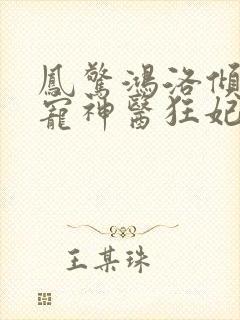 鳳驚鴻洛傾
寵神醫狂妃
王某珠